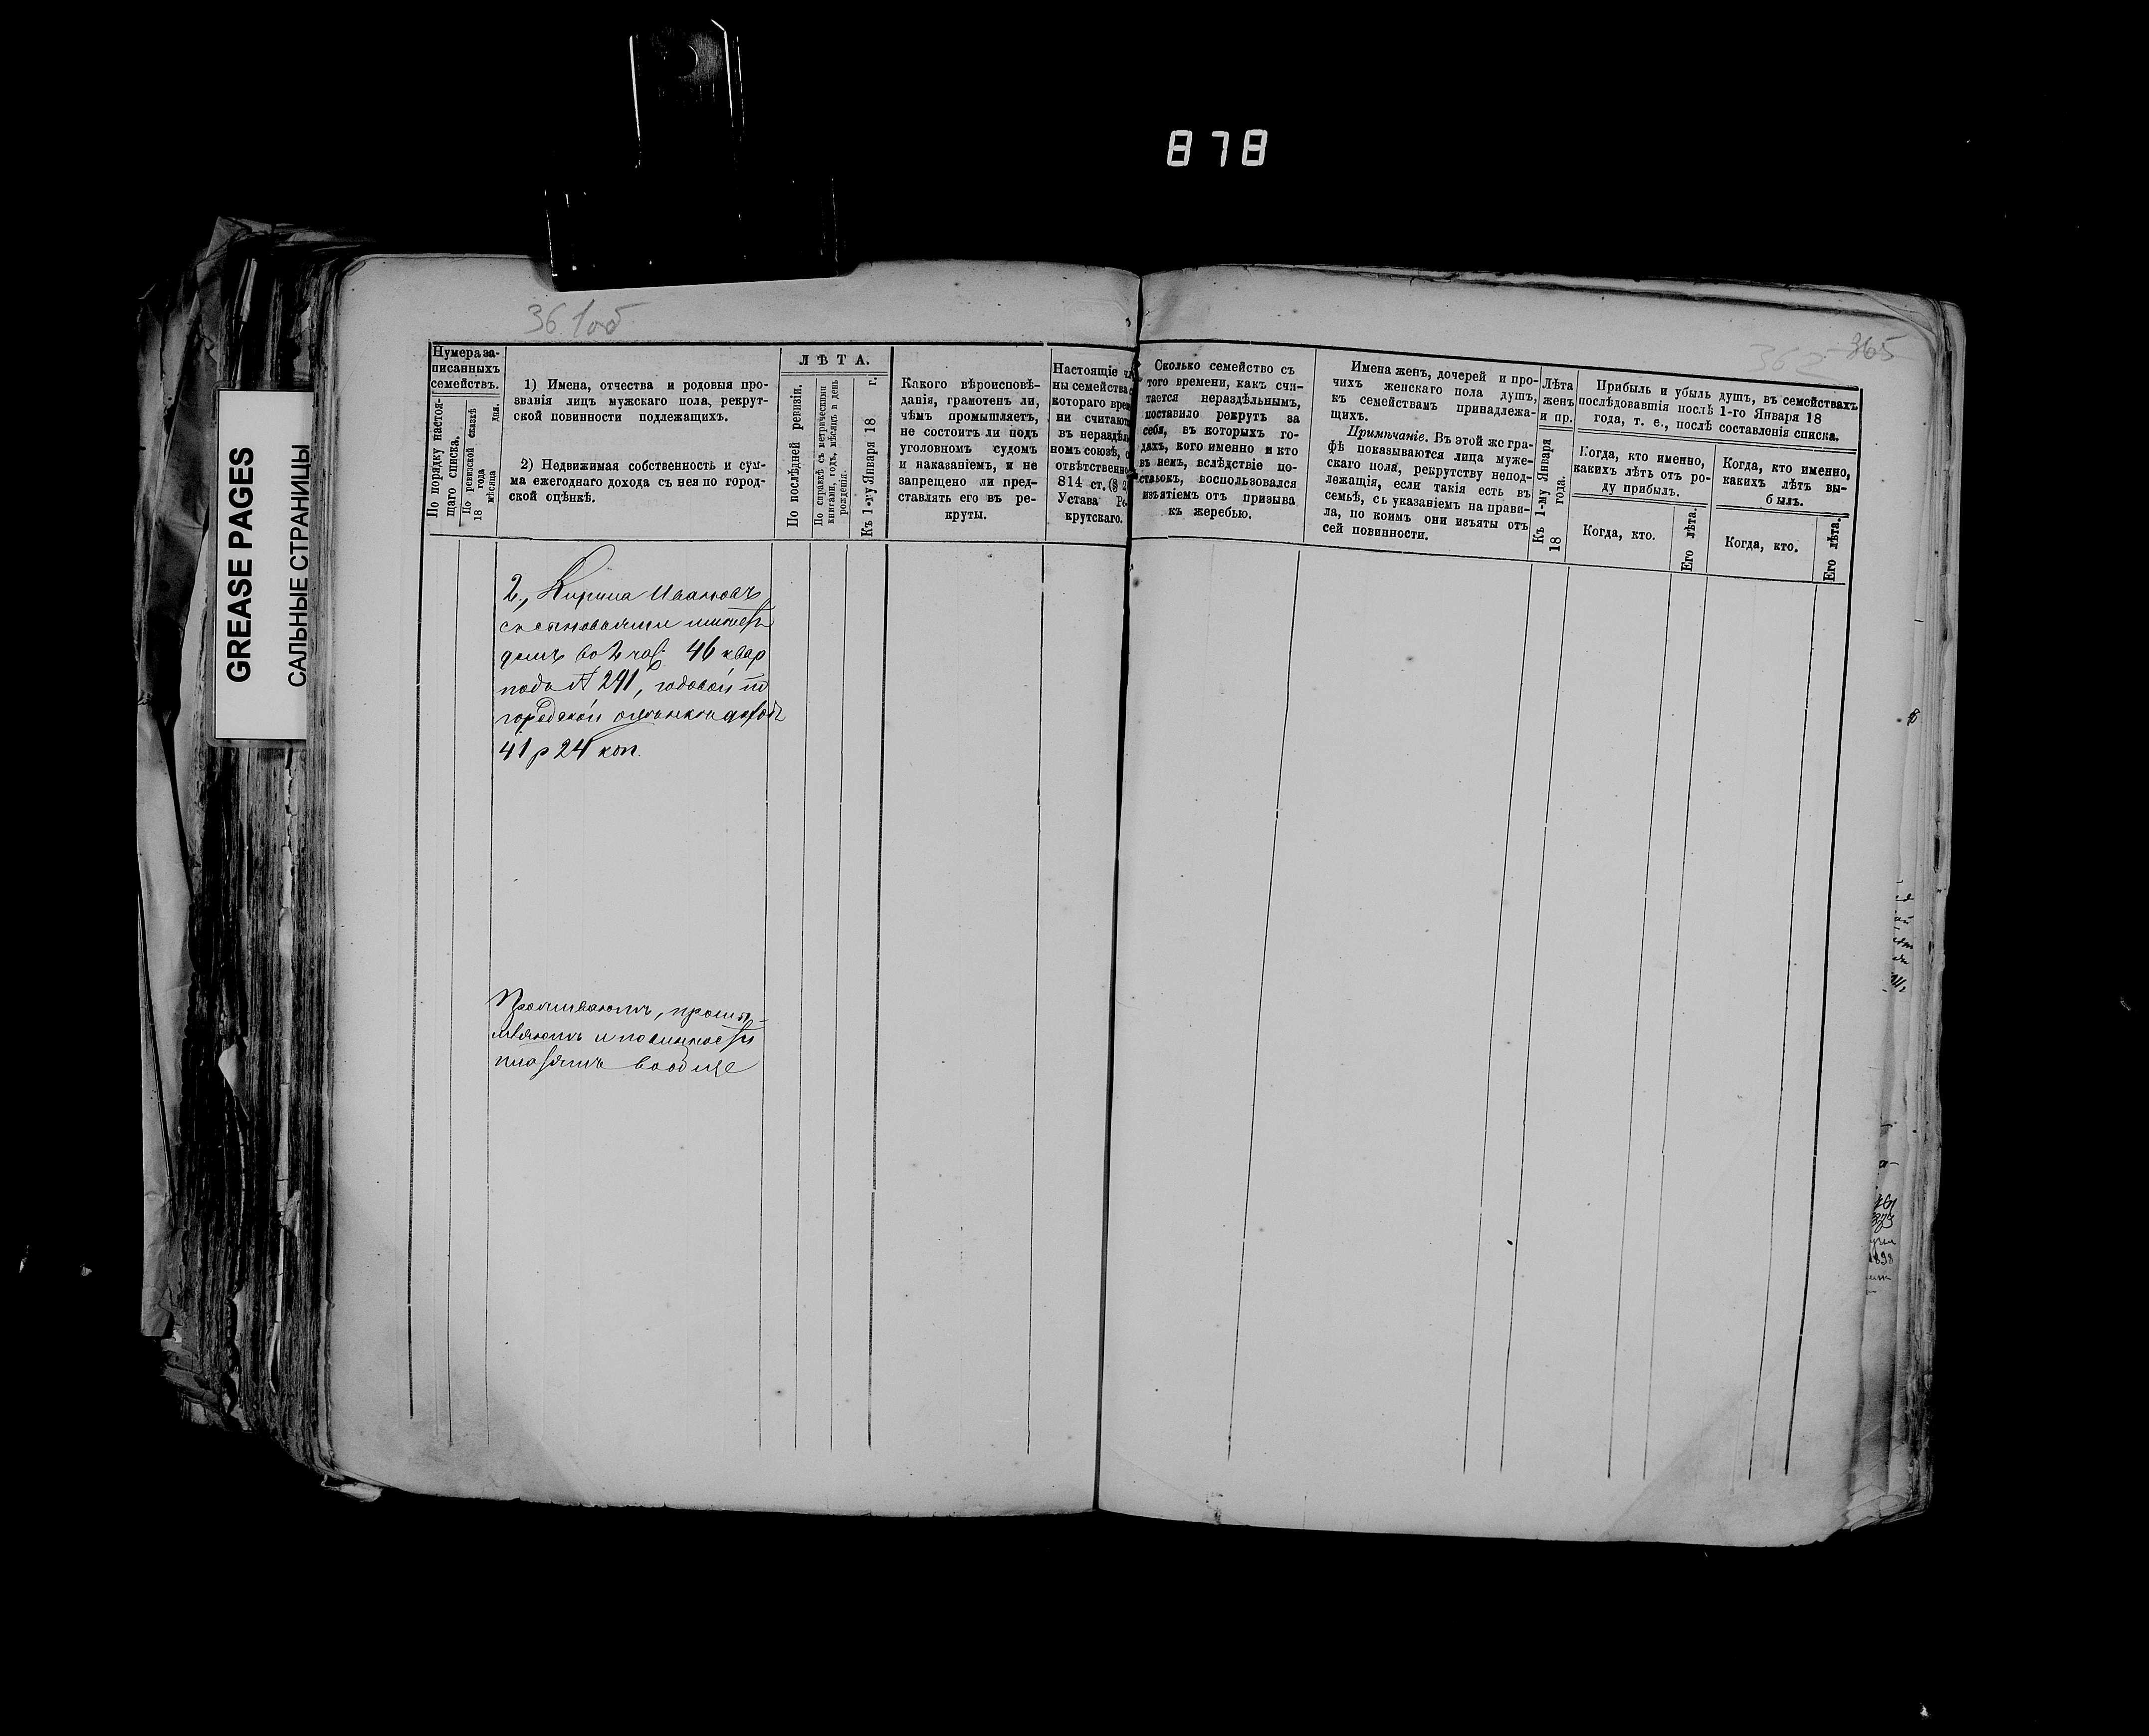 878
GREASE PAGES
САЛЬНЫЕ СТРАНИЦЫ
361об
362
365
Нумера за-
писанныхъ
семействъ.
По порядку настоя-
щаго списка.
По ревизской сказкѣ
18 года
мѣсяца дня.
1) Имена, отчества и родовыя про-
званія лицъ мужскаго пола, рекрут-
ской повинности подлежащихъ.
2) Недвижимая собственность и сум-
ма ежегоднаго дохода съ нея по город-
ской оцѣнкѣ.
ЛѢТА.
По послѣдней ревизіи.
По справкѣ съ метрическими
книгами, годъ, мѣсяцъ и день
рожденія.
Къ 1-му Января 18 г.
Какого вѣроисповѣ-
данія, грамотенъ ли,
чѣмъ промышляетъ,
не состоитъ ли подъ
уголовномъ судомъ
и наказаніемъ, и не
запрещено ли пред-
ставлять его въ ре-
круты.
Настоящіе
ны семейства
котораго врем
ни считают
въ нераздѣл
номъ союзѣ,
отвѣтственно
814 ст. (§ 2
Устава Ре-
крутскаго.
Сколько семейство съ
того времени, какъ счи-
тается нераздѣльнымъ,
поставило рекрутъ за
себя, въ которыхъ го-
дахъ, кого именно и кто
въ немъ, вслѣдствіе по-
ставокъ, воспользовался
изъятіемъ отъ призыва
къ жеребью.
Имена женъ, дочерей и про-
чихъ женскаго пола душъ,
къ семействамъ принадлежа-
щихъ.
Примѣчаніе. Въ этой же гра-
фѣ показываются лица муже-
скаго пола, рекрутству непод-
лежащія, если такія есть въ
семьѣ, съ указаніемъ на прави-
ла, по коимъ они изъяты отъ
сей повинности.
Лѣта
женъ
и пр.
Къ 1-му Января
18 года.
Прибыль и убыль душъ, въ семействахъ
послѣдовавшія послѣ 1-го Января 18
года, т. е., послѣ составленія списка.
Когда, кто именно,
какихъ лѣтъ отъ ро-
ду прибылъ.
Когда, кто именно,
какихъ лѣтъ вы-
былъ.
Когда, кто.
Его лѣта.
Когда, кто.
Его лѣта.
2., Кирила Ивановъ
съ сыновьями имѣетъ
домъ во 2 час. 46 квар
подъ № 291, годовой по
городской оцѣнки доходъ
41 р 24 коп.
Проживаютъ, промы-
шляютъ и повинности
платятъ вообще